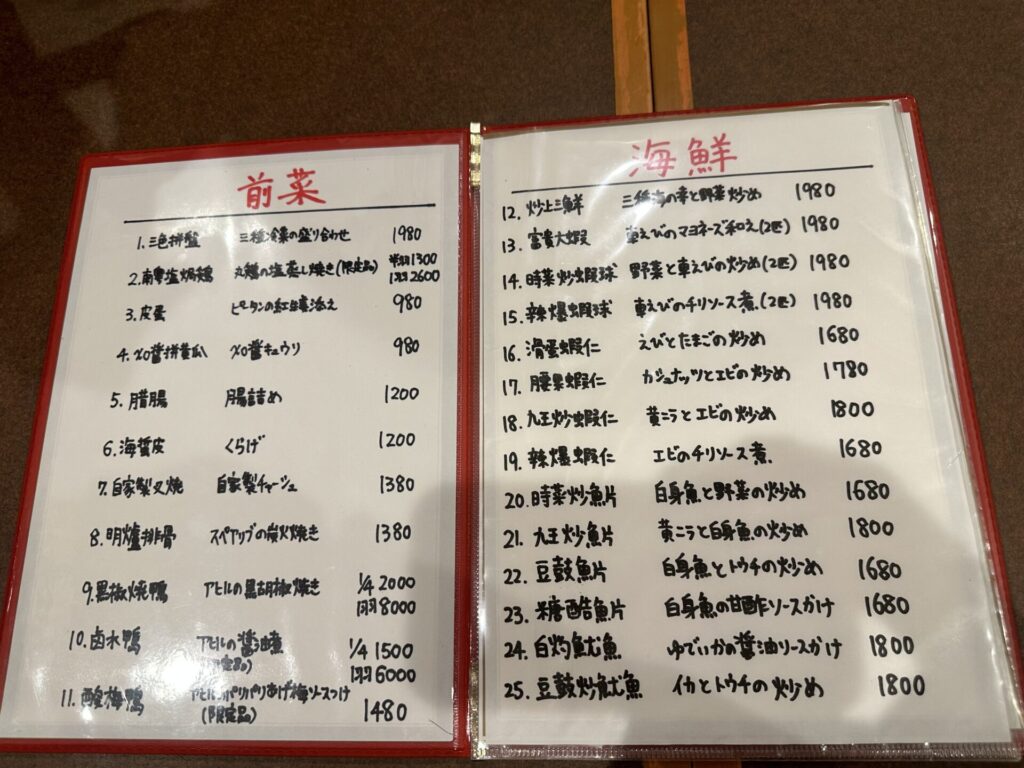 前菜
1. 三色拼盤 三種冷菜の盛り合わせ 1980
2. 南塩焗鶏 丸鶏の塩蒸し焼き(限定品) 半羽1300
1羽2600
3. 皮蛋 ピータンの紅生姜添え 980
4. XO醤拼黄瓜 XO醤キュウリ 980
5. 腊腸 腸詰め 1200
6. 海蜇皮 くらげ 1200
7. 自家製叉焼 自家製チャーシュ 1380
8. 明爐排骨 スペアリブの炭火焼き 1380
9. 黒椒焼鴨 アヒルの黒胡椒焼き 1/4 2000
1羽8000
10. 卤水鴨 アヒルの醤油煮 1/4 1500
(限定品) 1羽6000
11. 酸梅鴨 アヒルパリパリあげ梅ソースつけ
(限定品) 1480
海鮮
12. 炒上三鮮 三種海の幸と野菜炒め 1980
13. 富貴大蝦 車えびのマヨネーズ和え(2匹) 1980
14. 時菜炒蝦球 野菜と車えびの炒め(2匹) 1980
15. 辣爆蝦球 車えびのチリソース煮(2匹) 1980
16. 滑蛋蝦仁 えびとたまごの炒め 1680
17. 腰果蝦仁 カシュナッツとエビの炒め 1780
18. 九王炒蝦仁 黄ニラとエビの炒め 1800
19. 辣爆蝦仁 エビのチリソース煮 1680
20. 時菜炒魚片 白身魚と野菜の炒め 1680
21. 九王炒魚片 黄ニラと白身魚の炒め 1800
22. 豆鼓魚片 白身魚とトウチの炒め 1680
23. 糖酷魚片 白身魚の甘酢ソースかけ 1680
24. 白灼魷魚 ゆでいかの醤油ソースかけ 1800
25. 豆鼓炒魷魚 イカとトウチの炒め 1800